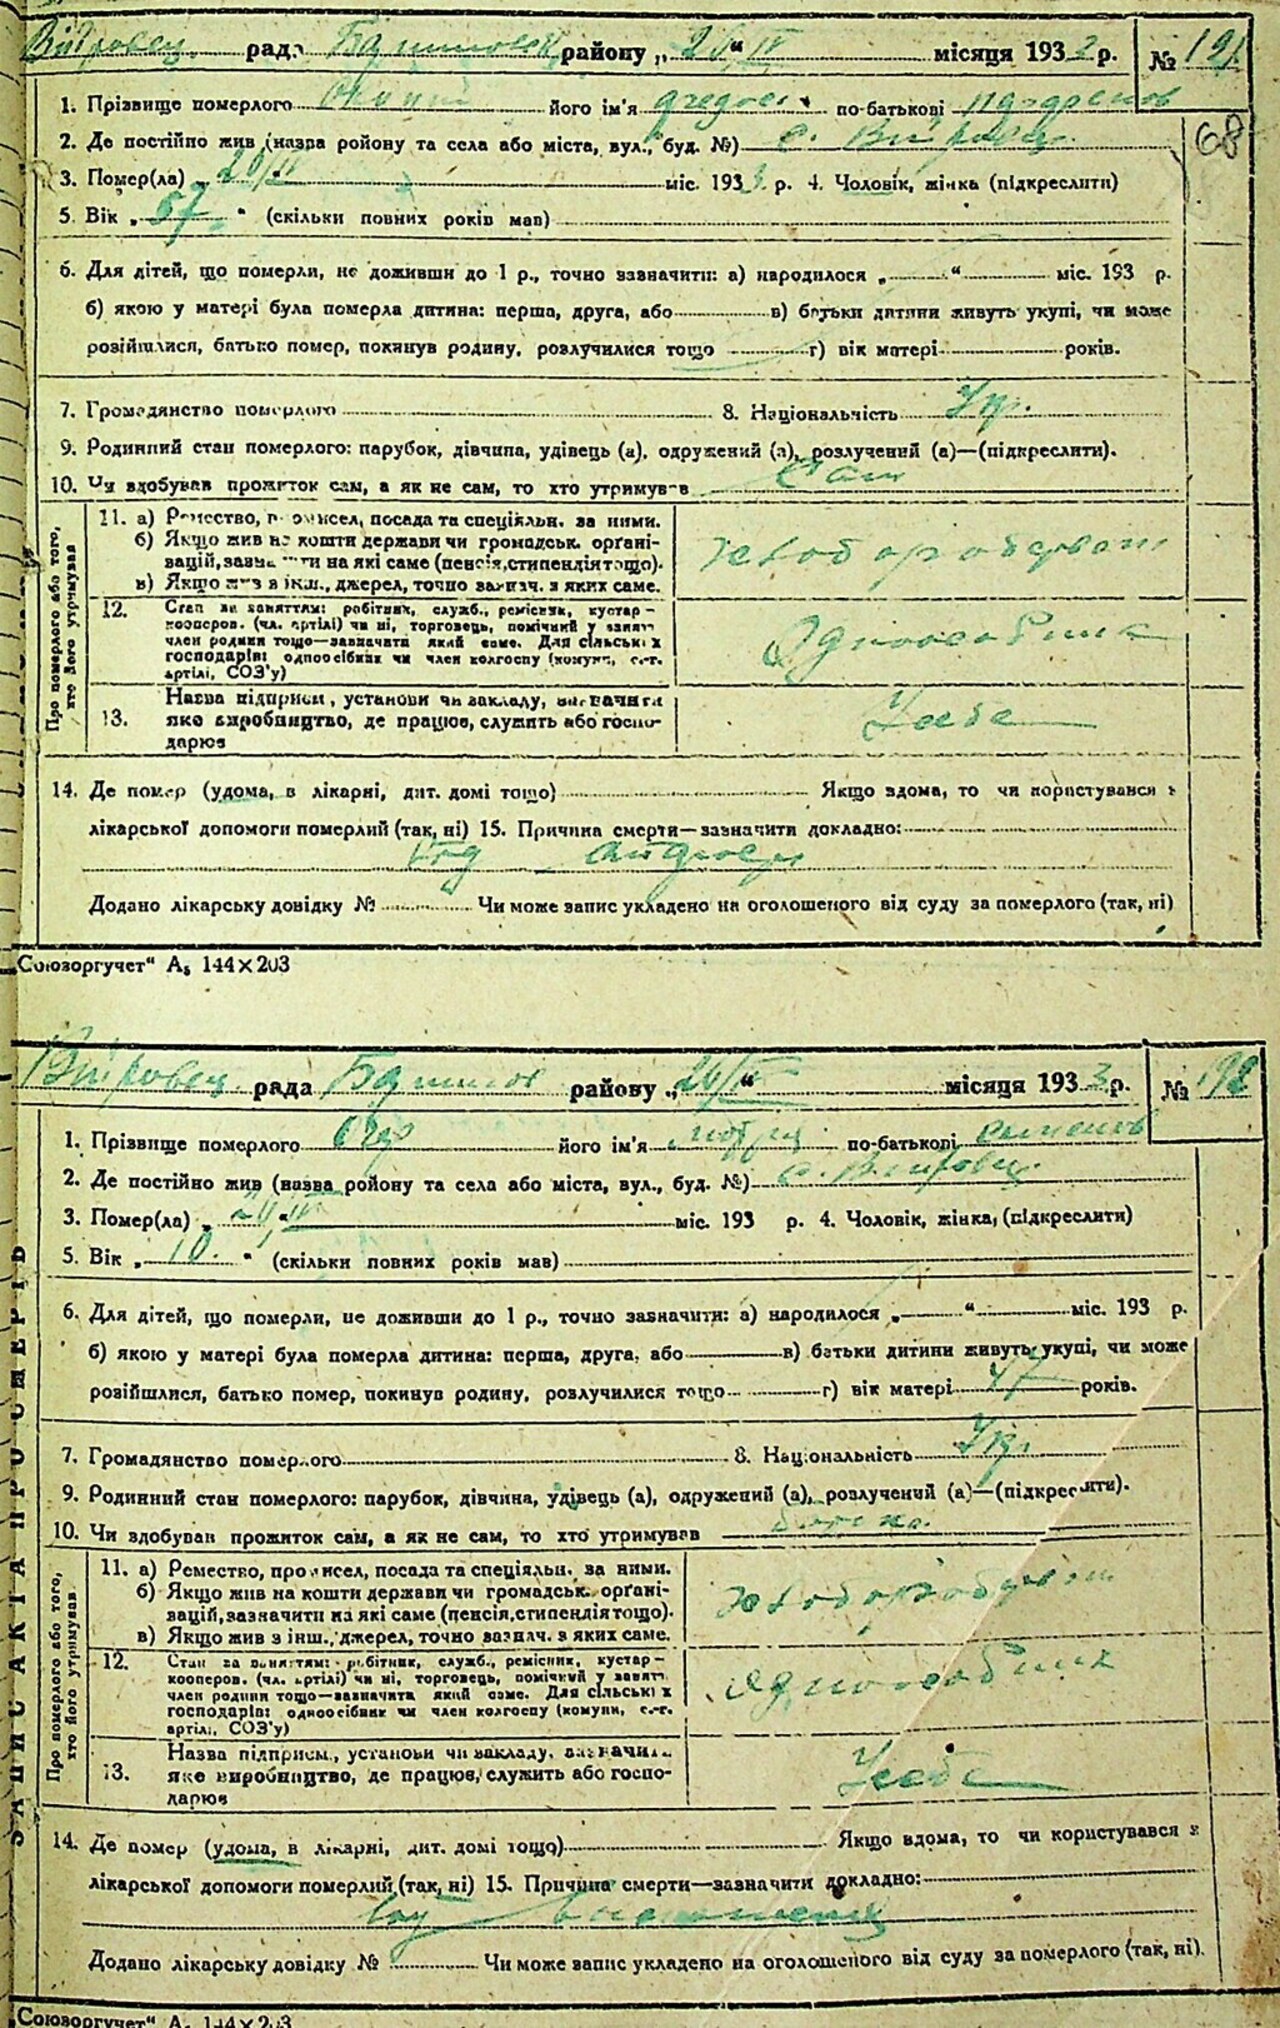 рада району „20/IV“ місяця 1933 р. № 191
68
1. Прізвище померлого його ім'я по-батькові
2. Де постійно жив (назва ройону та села або міста, вул., буд. №) с.
3. Помер(ла) „20/IV міс. 1933 р. 4. Чоловік, жінка (підкреслити)
5. Вік „57“ (скільки повних років мав)
6. Для дітей, що померли, не доживши до 1 р., точно зазначити: а) народилося „ “ міс. 193 р.
б) якою у матері була померла дитина: перша, друга, або в) батьки дитини живуть укупі, чи може
розійшлися, батько помер, покинув родину, розлучилися тощо г) вік матері років.
7. Громадянство померлого 8. Національність Укр.
9. Родинний стан померлого: парубок, дівчина, удівець (а), одружений (а), розлучений (а)—(підкреслити).
10. Чи здобував прожиток сам, а як не сам, то хто утримував Сам
Про померлого або того, хто його утримував
11. а) Ремество, промисел, посада та спеціяльн. за ними.
б) Якщо жив на кошти держави чи громадськ. орґані-
зацій, зазначити на які саме (пенсія, стипендія тощо).
в) Якщо жив з інш., джерел, точно зазнач. з яких саме.
Хлібороб
12. Стан за заняттям: робітник, служб., ремісник, кустар-
кооперов. (чл. артілі) чи ні, торговець, помічний у занятт.
член родини тощо—зазначити який саме. Для сільськ х
господарів: одноосібник чи член колгоспу (комуни, с.-г.
артілі, СОЗ'у)
13. Назва підприєм., установи чи закладу, визначити
яке виробництво, де працює, служить або госпо-
дарює
У себе
14. Де помер (удома, в лікарні, дит. домі тощо) Якщо вдома, то чи користувався з
лікарської допомоги померлий (так, ні) 15. Причина смерти—зазначити докладно:
Додано лікарську довідку № Чи може запис укладено на оголошеного від суду за померлого (так, ні)
„Союзоргучет“ А₅ 144×203
рада району „20/IV“ місяця 1933 р. № 192
1. Прізвище померлого його ім'я по-батькові
2. Де постійно жив (назва ройону та села або міста, вул., буд. №) с.
3. Помер(ла) „20/IV міс. 193 р. 4. Чоловік, жінка, (підкреслити)
5. Вік „10.“ (скільки повних років мав)
6. Для дітей, що померли, не доживши до 1 р., точно зазначити: а) народилося „ “ міс. 193 р.
б) якою у матері була померла дитина: перша, друга, або в) батьки дитини живуть укупі, чи може
розійшлися, батько помер, покинув родину, розлучилися тощо г) вік матері 47 років.
7. Громадянство померлого 8. Національність Укр.
9. Родинний стан померлого: парубок, дівчина, удівець (а), одружений (а), розлучений (а)—(підкреслити).
10. Чи здобував прожиток сам, а як не сам, то хто утримував
ЗАПИСКА ПРО СМЕРТЬ
Про померлого або того, хто його утримував
11. а) Ремество, промисел, посада та спеціяльн. за ними.
б) Якщо жив на кошти держави чи громадськ. орґані-
зацій, зазначити на які саме (пенсія, стипендія тощо).
в) Якщо жив з інш., джерел, точно зазнач. з яких саме.
Хлібороб
12. Стан за заняттям: робітник, служб., ремісник, кустар-
кооперов. (чл. артілі) чи ні, торговець, помічний у занятт.
член родини тощо—зазначити який саме. Для сільськ х
господарів: одноосібник чи член колгоспу (комуни, с.-г.
артілі, СОЗ'у)
13. Назва підприєм., установи чи закладу, визначити
яке виробництво, де працює, служить або госпо-
дарює
У себе
14. Де помер (удома, в лікарні, дит. домі тощо) Якщо вдома, то чи користувався з
лікарської допомоги померлий (так, ні) 15. Причина смерти—зазначити докладно:
Додано лікарську довідку № Чи може запис укладено на оголошеного від суду за померлого (так, ні).
„Союзоргучет“ А₅ 144×203